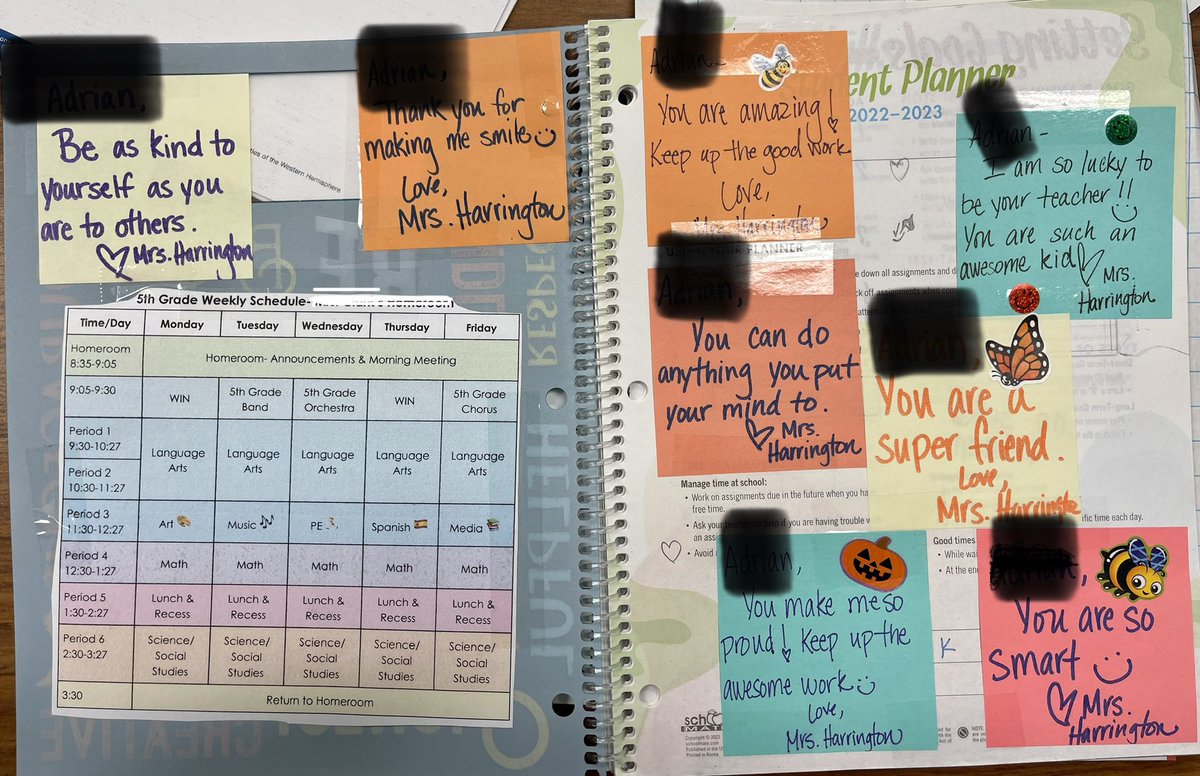 Adrian,
Be as kind to
yourself as you
are to others.
♡ Mrs. Harrington
Adrian,
Thank you for
making me smile☺
Love,
Mrs. Harrington
ties of the Western Hemisphere
5th Grade Weekly Schedule- Homeroom
Time/Day Monday Tuesday Wednesday Thursday Friday
Homeroom
8:35-9:05
Homeroom- Announcements & Morning Meeting
9:05-9:30
WIN
5th Grade
Band
5th Grade
Orchestra
WIN
5th Grade
Chorus
Period 1
9:30-10:27
Period 2
10:30-11:27
Language
Arts
Language
Arts
Language
Arts
Language
Arts
Language
Arts
Period 3
11:30-12:27
Art 🎨 Music 🎶 PE Spanish 🇪🇸 Media 📚
Period 4
12:30-1:27
Math Math Math Math Math
Period 5
1:30-2:27
Lunch &
Recess
Lunch &
Recess
Lunch &
Recess
Lunch &
Recess
Lunch &
Recess
Period 6
2:30-3:27
Science/
Social
Studies
Science/
Social
Studies
Science/
Social
Studies
Science/
Social
Studies
Science/
Social
Studies
3:30 Return to Homeroom
RESPE
HELPFUL
ent Planner
2022–2023
Adrian-
You are amazing!
Keep up the good work
Love,
Mrs. Harrington
Adrian-
I am so lucky to
be your teacher!!☺
You are such an
awesome kid♡ Mrs.
Harrington
USING YOUR PLANNER
Adrian,
You can do
anything you put
your mind to.
♡ Mrs.
Harrington
Adrian,
You are a
super friend.
Love,
Mrs. Harrington
e down all assignments and d
ck off assignments when com
Manage time at school:
• Work on assignments due in the future when you ha
free time.
• Ask your teacher for help if you are having trouble w
an assi
• Avoid
ific time each day.
Good times
• While wai
• At the en
K
Adrian,
You make me so
proud! Keep up the
awesome work☺
Love,
Mrs. Harrington
Adrian,
You are so
smart ☺
♡ Mrs.
Harrington
Copyright © 2022
schoolmate.com
Published in the US
Printed in Korea
NOTE